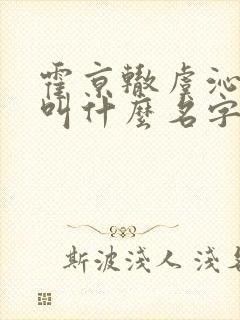 霍京辙虞沁
叫什麽名字
斯波淺人 淺